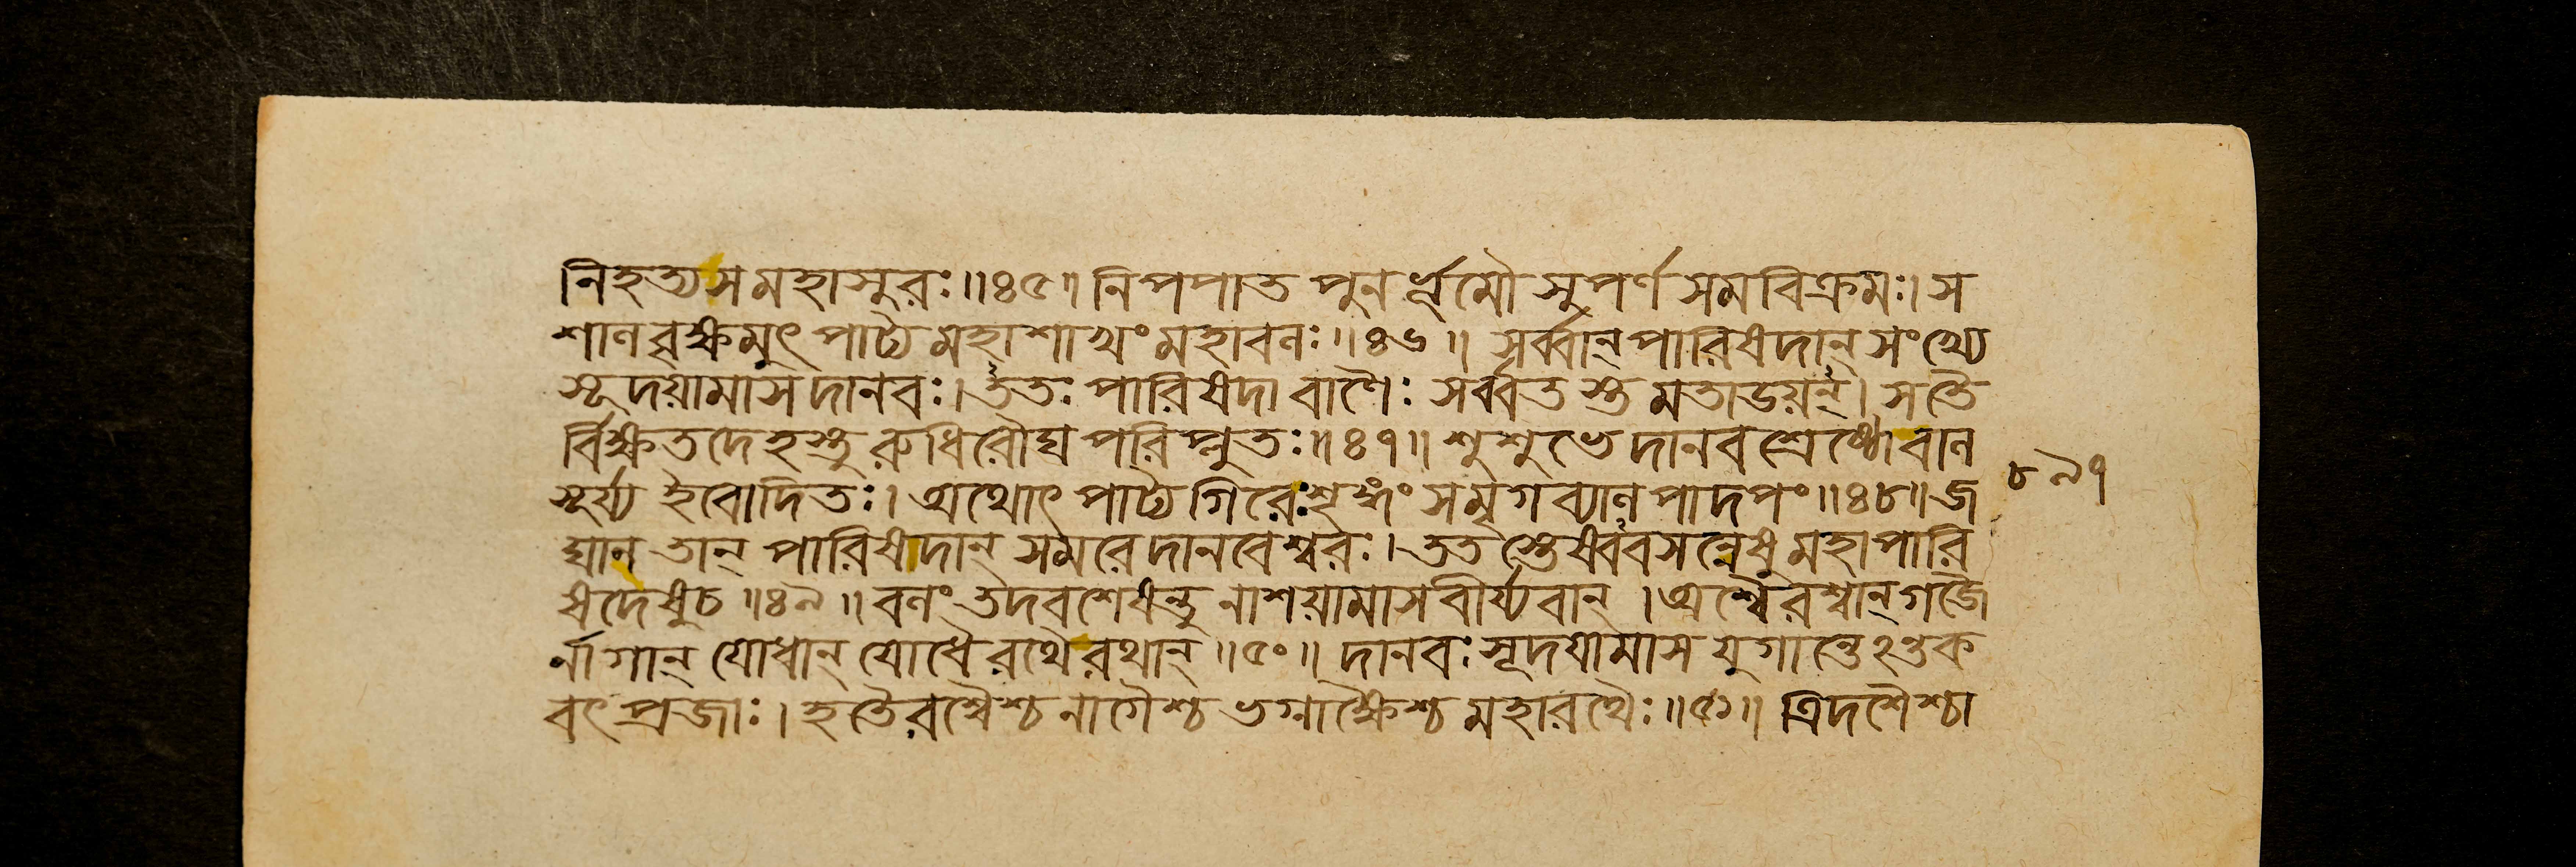 নিহত্যসমহাসুরঃ॥৪৫॥নিপপাত পুনর্ভূমৌ সুপর্ণ সমবিক্রমঃ। স
শালবৃক্ষমুৎপাট্য মহাশাখং মহাবলঃ॥৪৬॥ সর্ব্বান্ পারিষদান্ সংখ্যে
সূদয়ামাস দানবঃ। ততঃ পারিষদা বাণৈঃ সর্ব্বত স্তু মতাডয়ন্। সতৈ
র্বিক্ষতদেহস্তু রুধিরৌঘ পরিপ্লুতঃ॥৪৭॥ শুশুভে দানবশ্রেষ্ঠো বাল
সূর্য্য ইবোদিতঃ। অথোৎপাট্য গিরেঃশৃঙ্গং সমৃগব্যাল পাদপং॥৪৮॥জ
ঘান তান্ পারিষদান্ সমরে দানবেশ্বরঃ। তত স্তেষ্বব সন্নেষু মহাপারি
ষদেষুচ॥৪৯॥বলং তদবশেষন্তু নাশয়ামাস বীর্য্যবান্। অশ্বৈরশ্বান্ গজৈ
র্নাগান্ যোধান্ যোধৈ রথৈ রথান্॥৫০॥ দানবঃ সূদয়ামাস যুগান্তেঽন্তক
বৎপ্রজাঃ। হতৈরশ্বৈশ্চ নাগৈশ্চ ভগ্নাক্ষৈশ্চ মহারথৈঃ॥৫১॥ ত্রিদশৈশ্চা
৮৯৭